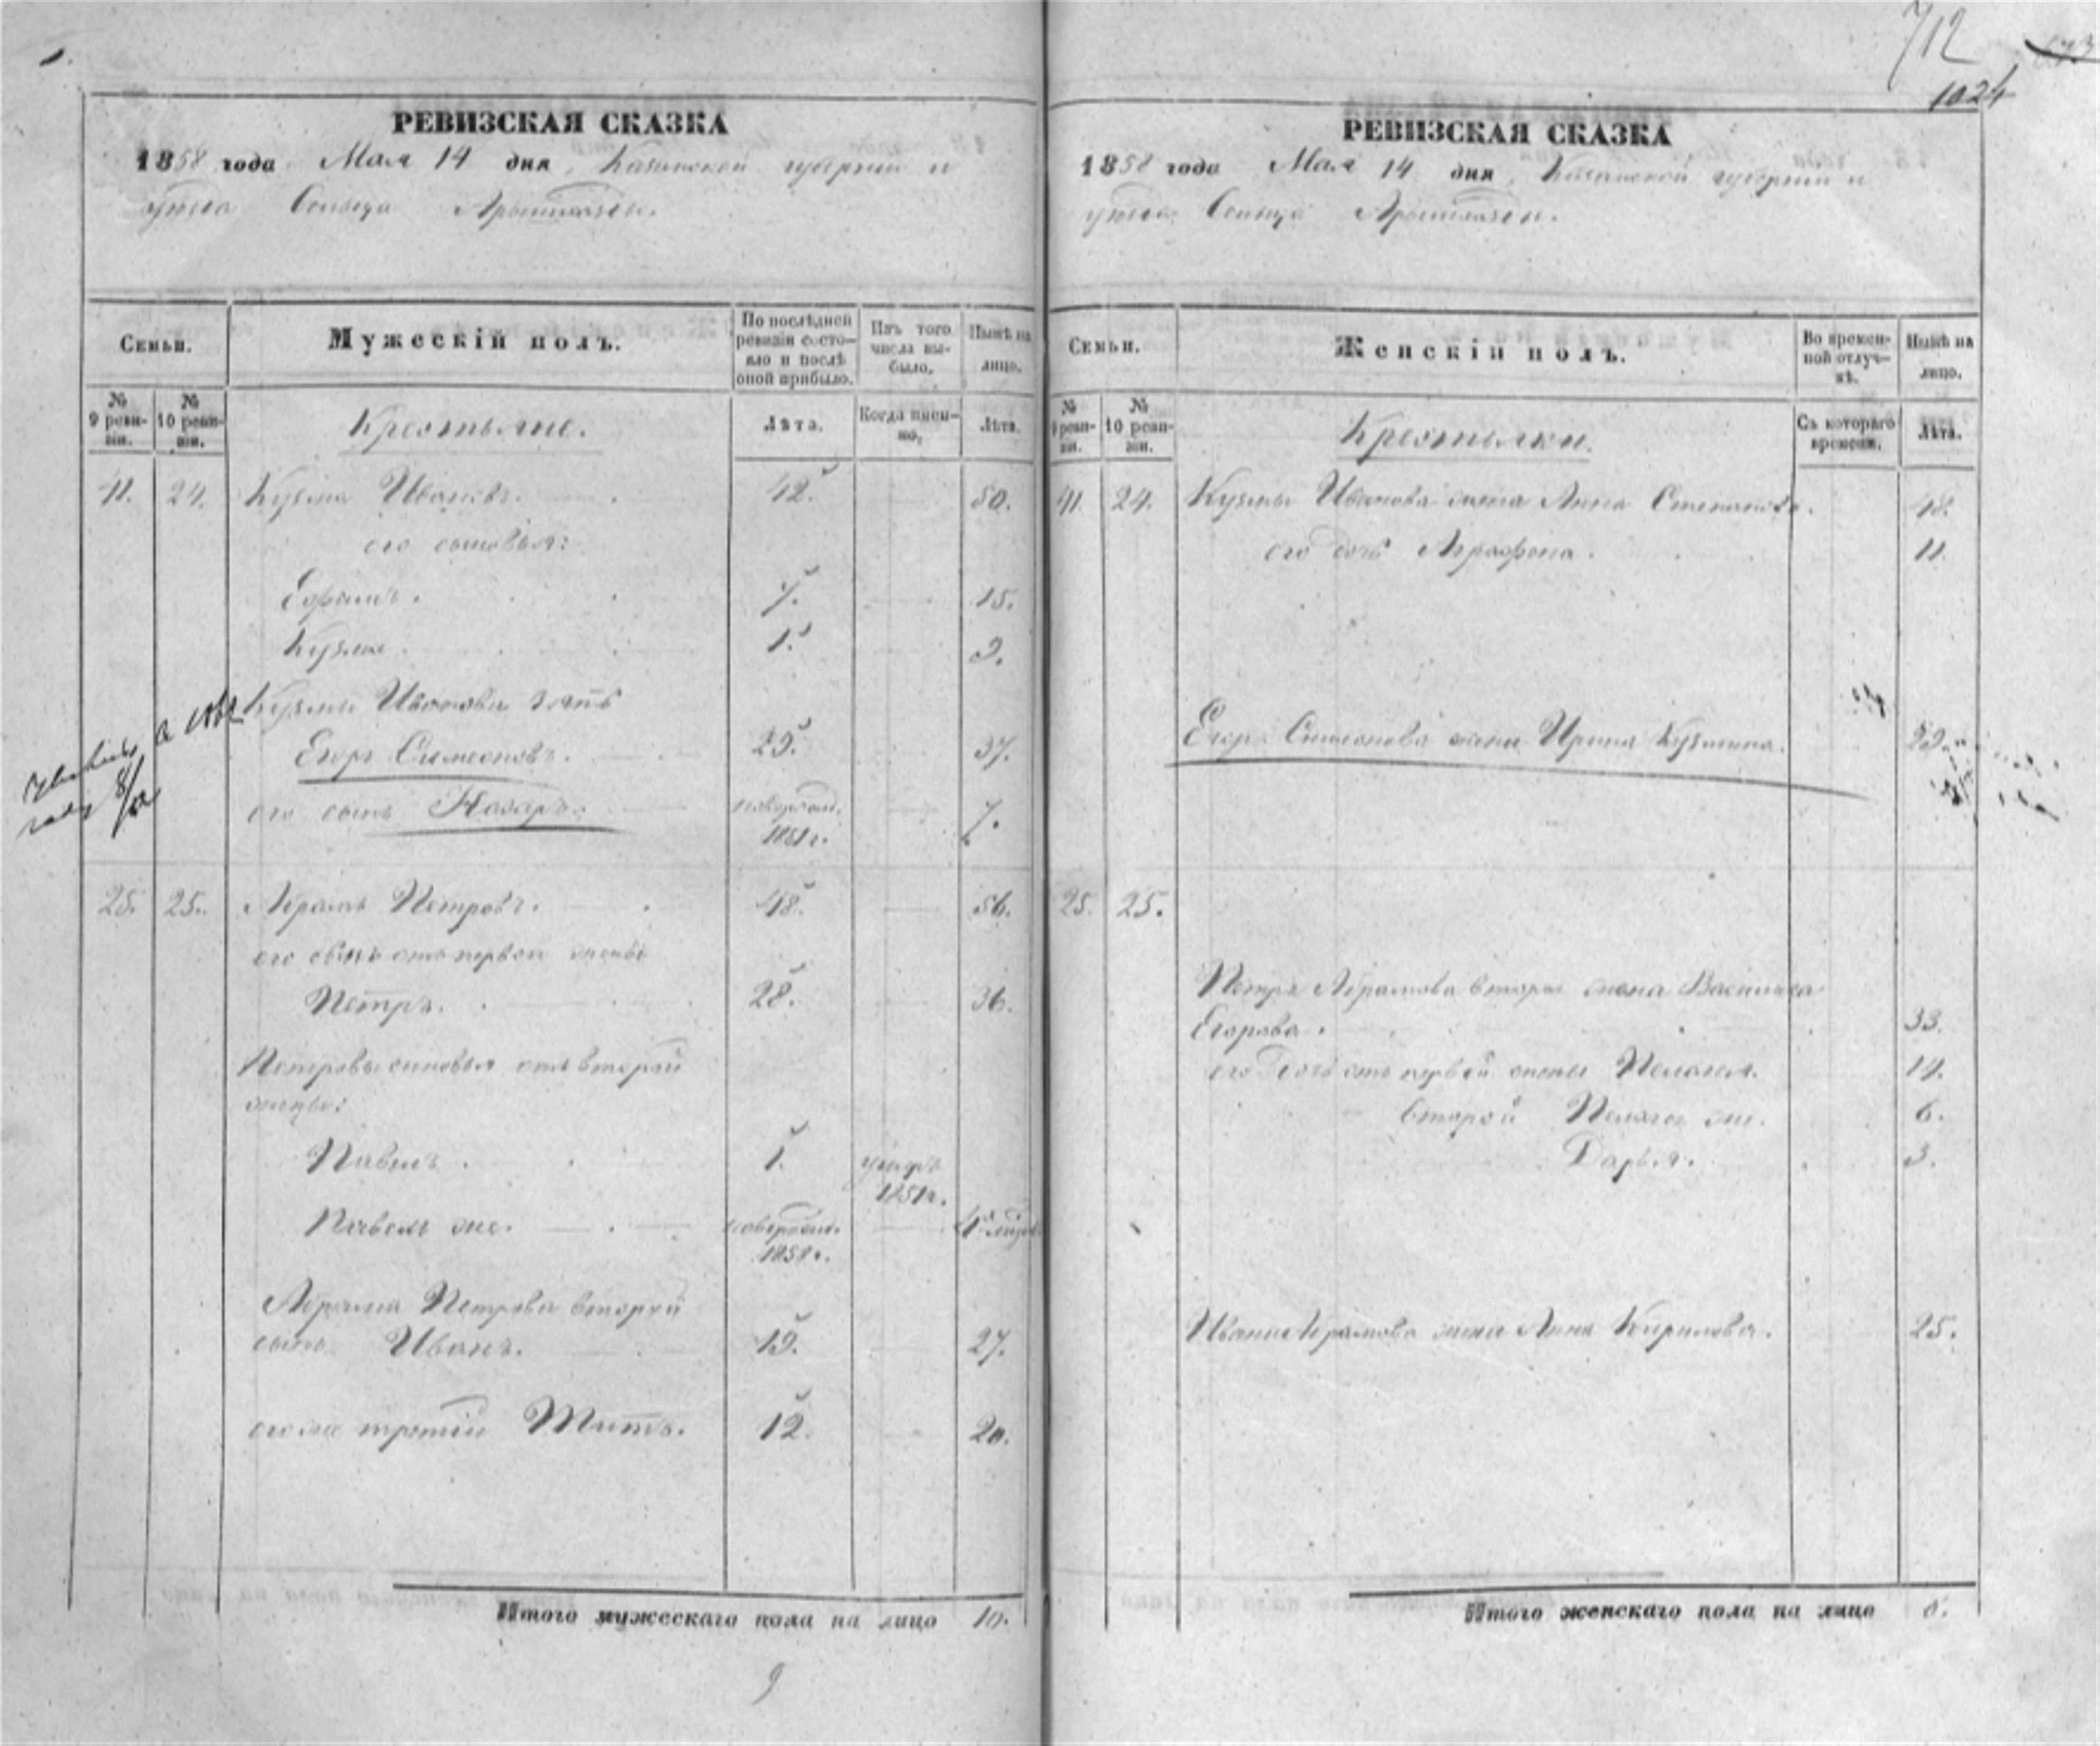 712
1024
РЕВИЗСКАЯ СКАЗКА
1858 года Мая 14 дня, Казанской губернии и
уезда Сельца
Семьи.
Мужескій полъ.
По послѣдней ревизіи состо-яло и послѣ оной прибыло.
Изъ того числа вы-было.
Нынѣ на лицо.
№ 9 реви-зіи.
№ 10 реви-зіи.
Крестьяне.
Лѣта.
Когда имен-но.
Лѣта.
41. 24. Кузма Ивановъ. 42. 50.
его сыновья:
Ефимъ. 7. 15.
Кузма. 1. 9.
Кузмы Иванова зять
Егоръ Симеоновъ. 29. 37.
его сынъ Назаръ. новорожд. 7.
1851 г.
25. 25. Абрамъ Петровъ. 48. 56.
его сынъ отъ первой жены
Петръ. 28. 36.
Петровы сыновья отъ второй
жены:
Павелъ. 1. умеръ
1851 г.
Павелъ же. новорожд.
Абрама Петрова второй
сынъ Иванъ. 19. 27.
его же третій Титъ. 12. 20.
Итого мужескаго пола на лицо 10.
9
РЕВИЗСКАЯ СКАЗКА
1858 года Мая 14 дня, Казанской губерніи и
уезда Сельца
Семьи.
Женскій полъ.
Во времен-ной отлуч-кѣ.
Нынѣ на лицо.
№ 9 реви-зіи.
№ 10 реви-зіи.
Крестьянки.
Съ котораго времени.
Лѣта.
41. 24. Кузмы Иванова жена Анна Степанова. 48.
его дочь Аграфена. 11.
Егора Симеонова жена Ирина Кузмина. 29.
25. 25.
Петра Абрамова вторая жена Василиса
Егорова. 33.
его дочь отъ первой жены Пелагея. 14.
второй Пелагея же. 6.
Дарья. 3.
Ивана Абрамова жена Анна Кирилова. 25.
Итого женскаго пола на лицо 8.